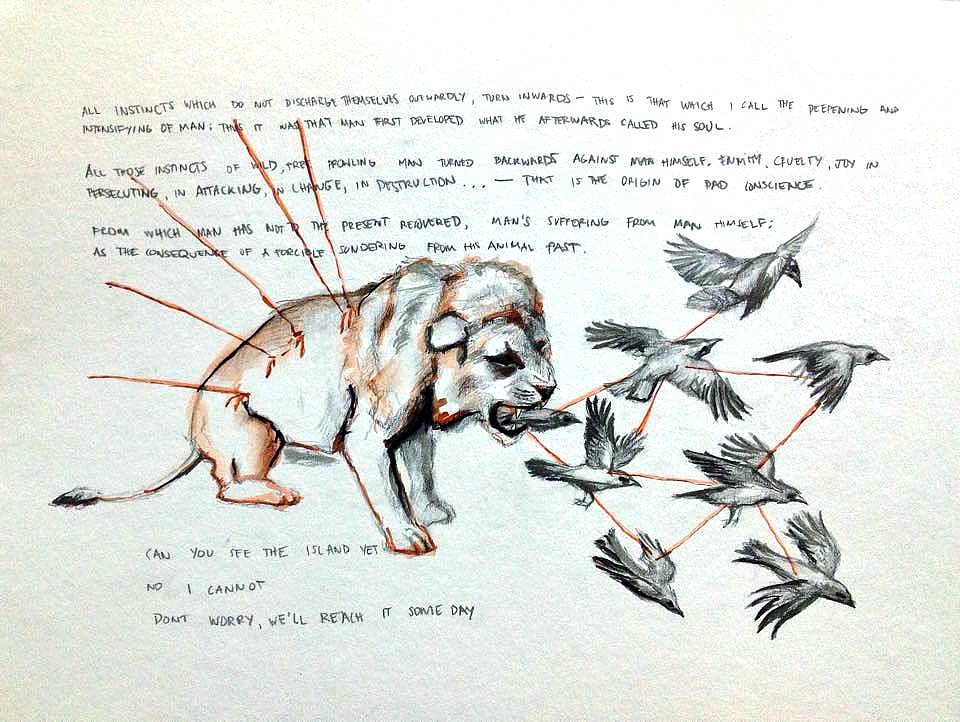 ALL INSTINCTS WHICH DO NOT DISCHARGE THEMSELVES OUTWARDLY, TURN INWARDS — THIS IS THAT WHICH I CALL THE DEEPENING AND
INTENSIFYING OF MAN; THUS IT WAS THAT MAN FIRST DEVELOPED WHAT HE AFTERWARDS CALLED HIS SOUL.
ALL THOSE INSTINCTS OF WILD, FREE PROWLING MAN TURNED BACKWARDS AGAINST MAN HIMSELF. ENMITY, CRUELTY, JOY IN
PERSECUTING, IN ATTACKING, IN CHANGE, IN DESTRUCTION.... — THAT IS THE ORIGIN OF BAD CONSCIENCE.
FROM WHICH MAN HAS NOT TO THE PRESENT RECOVERED, MAN'S SUFFERING FROM MAN HIMSELF;
AS THE CONSEQUENCE OF A FORCIBLE SUNDERING FROM HIS ANIMAL PAST.
CAN YOU SEE THE ISLAND YET
NO I CANNOT
DONT WORRY, WE'LL REACH IT SOME DAY